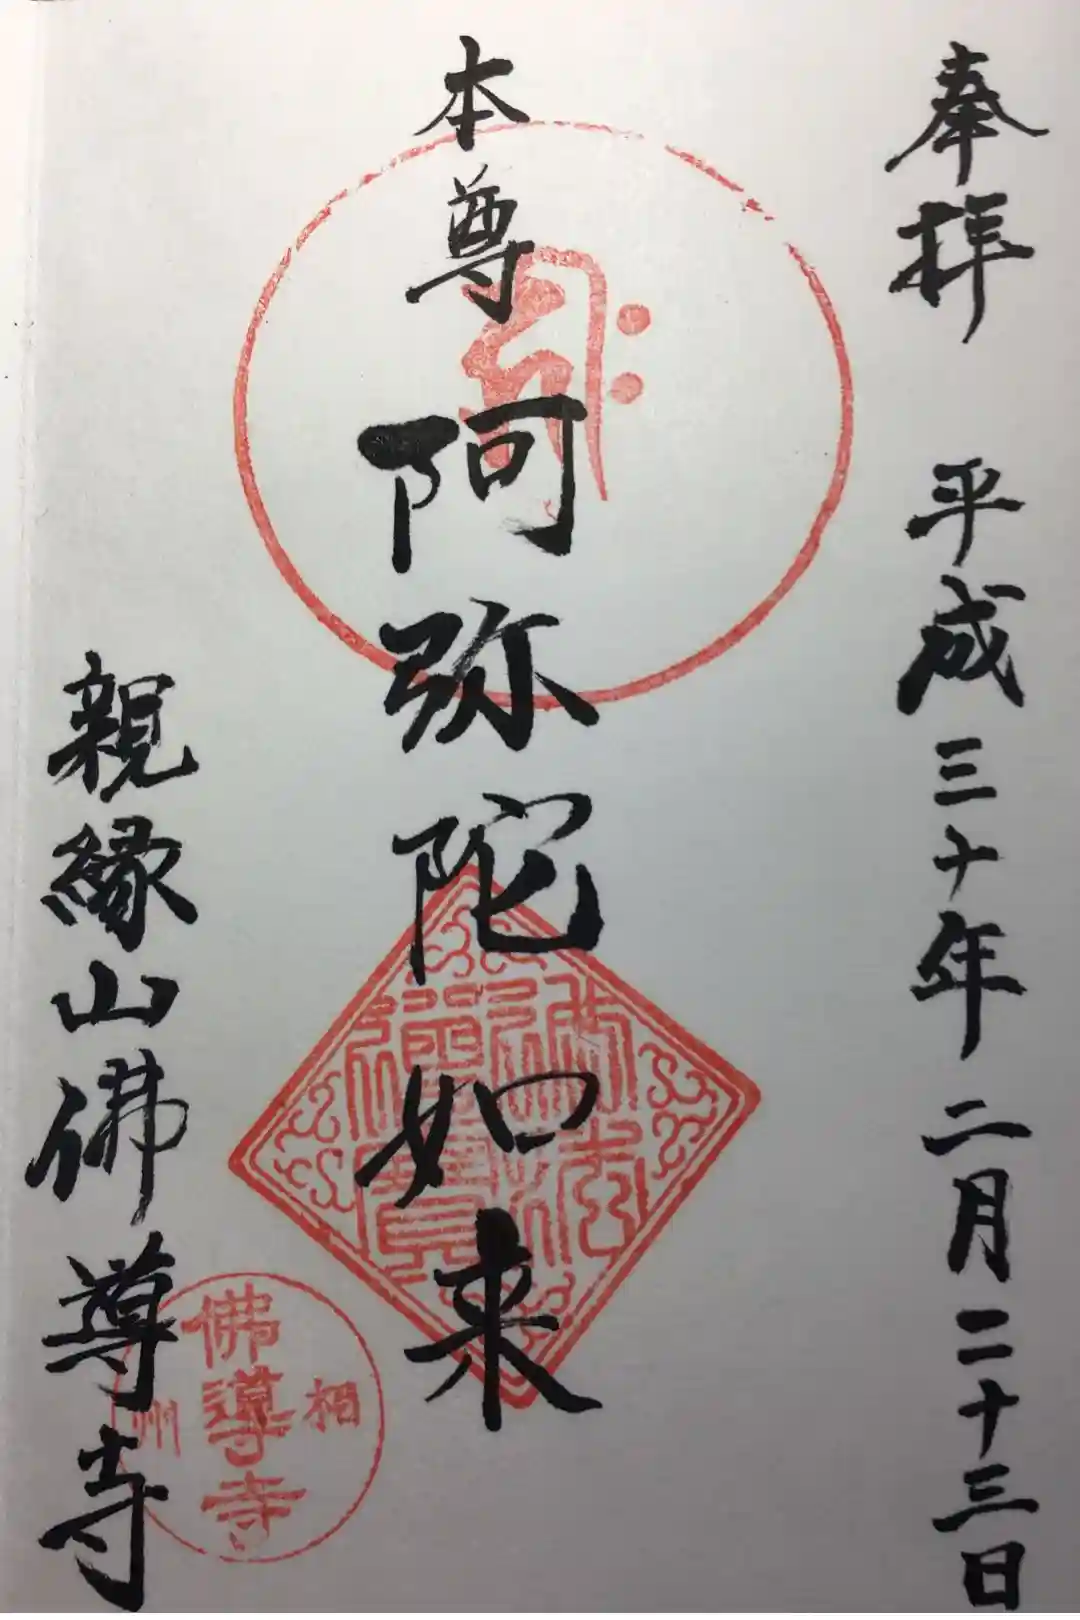 奉拝 平成三十年二月二十三日
本尊 阿弥陀如来
親縁山佛導寺
相州
佛導寺